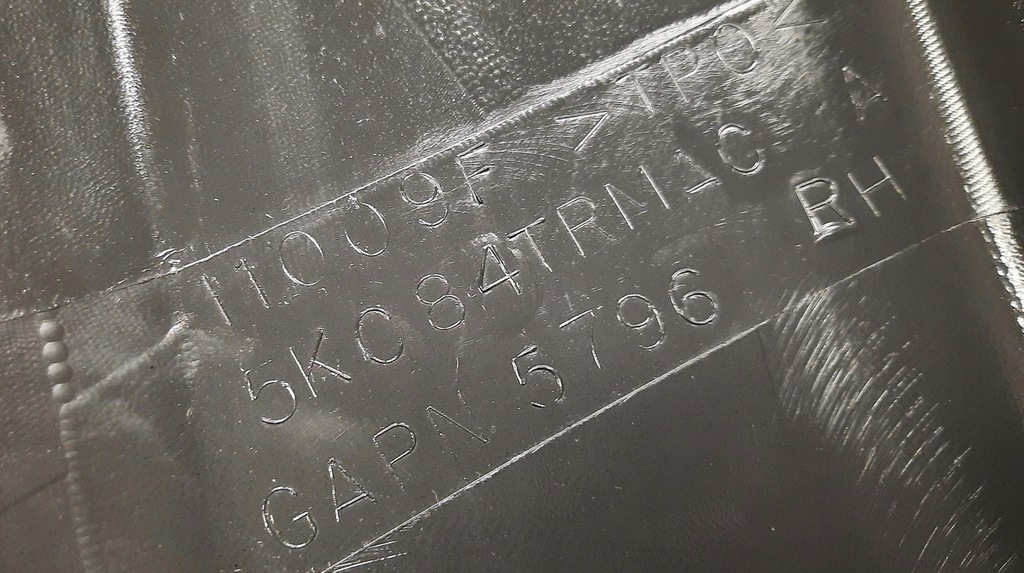 11009F >TPO<
5KC84TRMAC A
GAPN 5796 RH